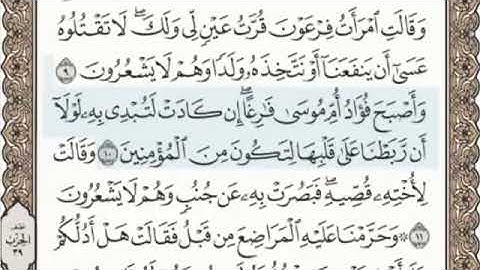 وَقَالَتِ ٱمْرَأَتُ فِرْعَوْنَ قُرَّتُ عَيْنٍ لِّى وَلَكَ ۖ لَا تَقْتُلُوهُ
عَسَىٰٓ أَن يَنفَعَنَآ أَوْ نَتَّخِذَهُۥ وَلَدًا وَهُمْ لَا يَشْعُرُونَ ٩
وَأَصْبَحَ فُؤَادُ أُمِّ مُوسَىٰ فَٰرِغًا ۖ إِن كَادَتْ لَتُبْدِى بِهِۦ لَوْلَآ
أَن رَّبَطْنَا عَلَىٰ قَلْبِهَا لِتَكُونَ مِنَ ٱلْمُؤْمِنِينَ ١٠ وَقَالَتْ
لِأُخْتِهِۦ قُصِّيهِ ۖ فَبَصُرَتْ بِهِۦ عَن جُنُبٍ وَهُمْ لَا يَشْعُرُونَ
١١ ۞ وَحَرَّمْنَا عَلَيْهِ ٱلْمَرَاضِعَ مِن قَبْلُ فَقَالَتْ هَلْ أَدُلُّكُمْ
الحزب
٣٩